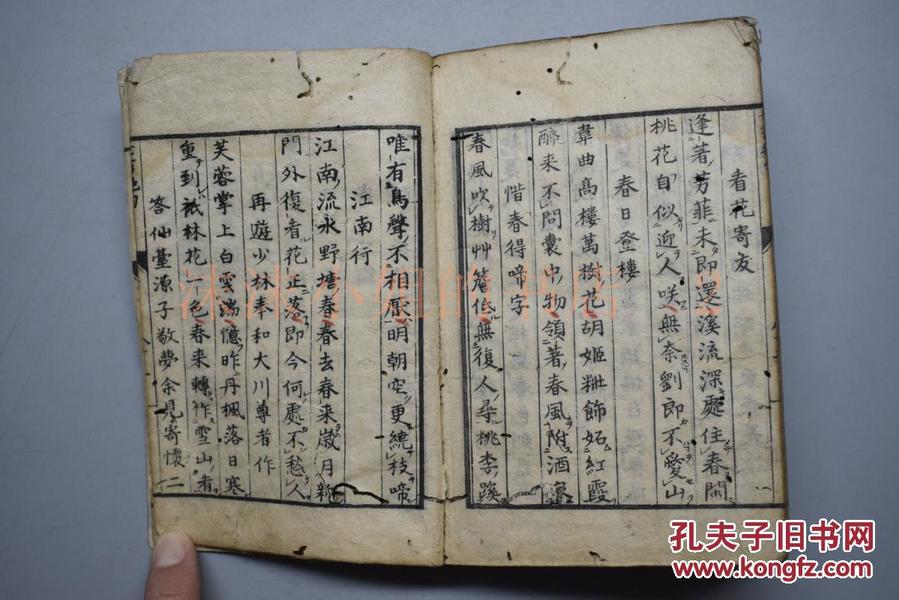 看花寄友
逢著芳菲未即還溪流深處住春閑
桃花自似近人咲無奈劉郎不愛山
春日登樓
韋曲高樓萬樹花胡姬粧飾妬紅霞
醉来不問囊中物領著春風附酒
惜春得啼字
春風吹樹艸萋低無復人尋桃李蹊
唯有鳥聲不相厭明朝空更繞枝啼
江南行
江南流水野塘春春去春来歲月新
門外復看花正落即今何處不愁人
再遊少林奉和大川尊者作
芙蓉掌上白雲端憶昨丹楓落日寒
重到祇林花一色春来轉作雪山看
答仙臺源子敬夢余見寄懷二
孔夫子旧书网
www.kongfz.com